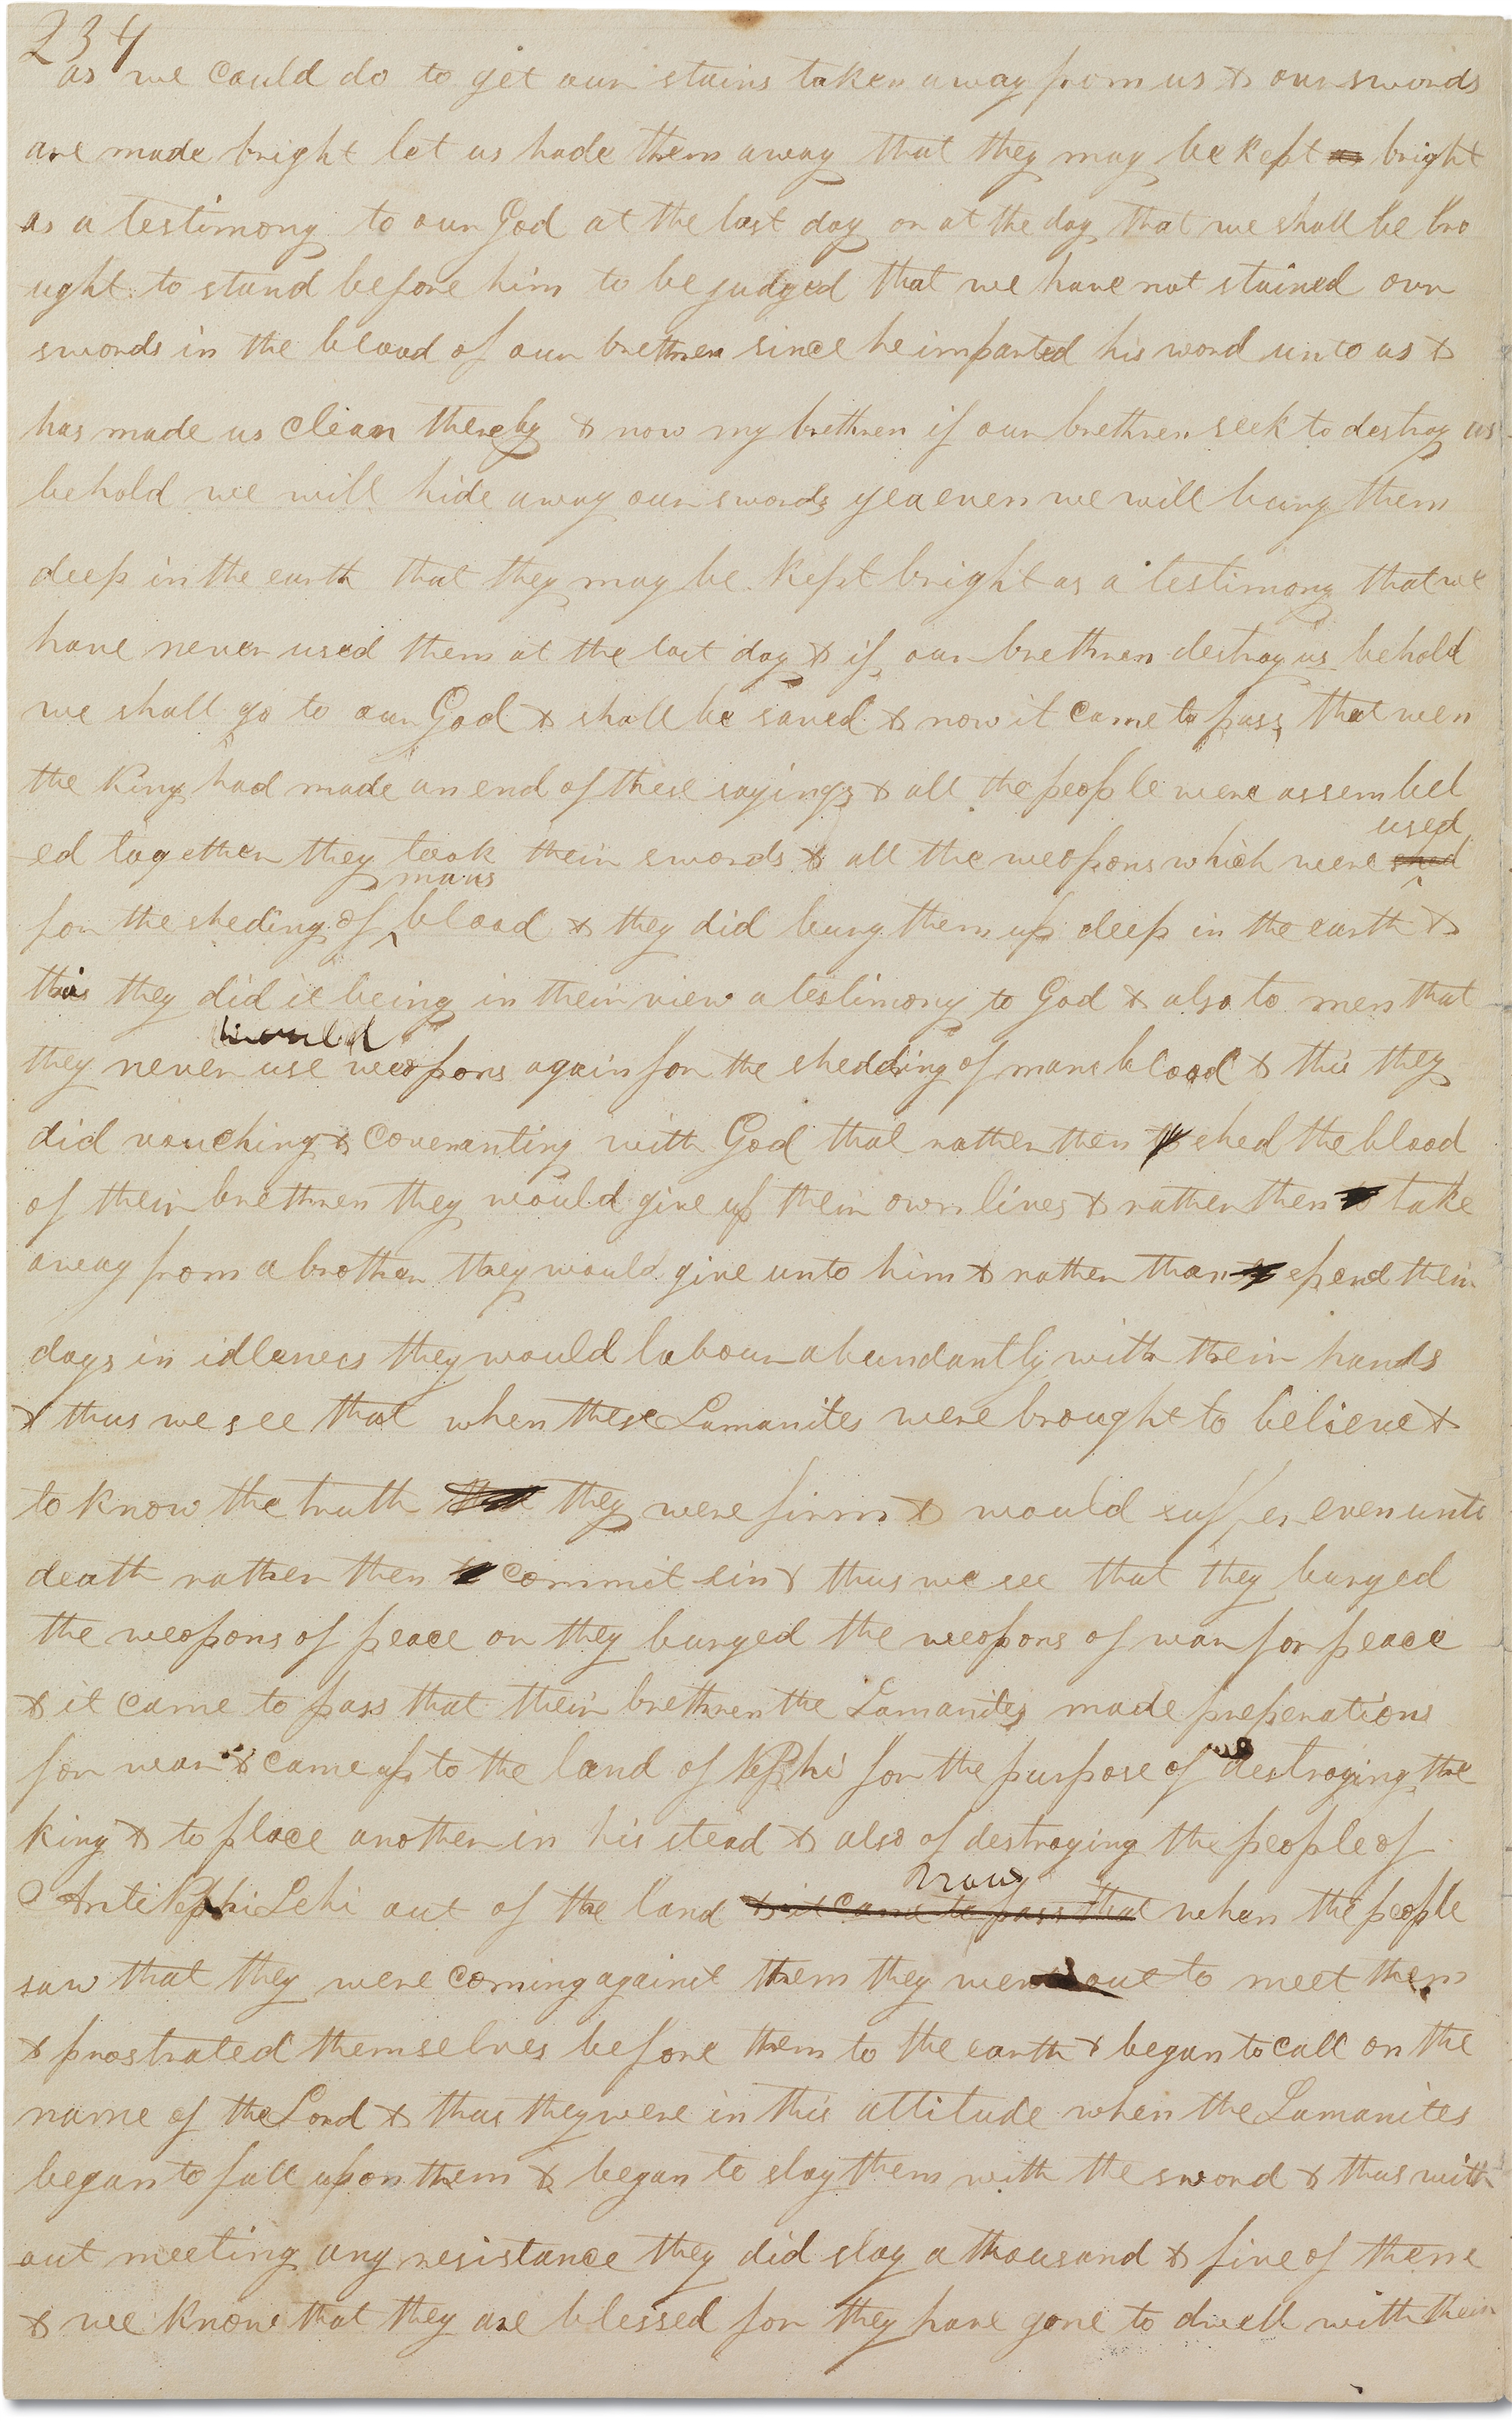 234
as we could do to get our stains taken away from us & our swords
are made bright let us hade them away that they may be kept as bright
as a testimony to our God at the last day or at the day that we shall be bro
ught to stand before him to be judged that we have not stained our
swords in the blood of our brethren since he imparted his word unto us &
has made us clean thereby & now my brethren if our brethren seek to destroy us
behold we will hide away our swords yea even we will bury them
deep in the earth that they may be kept bright as a testimony that we
have never used them at the last day & if our brethren destroy us behold
we shall go to our God & shall be saved & now it came to pass that wen
the King had made an end of these sayings & all the people were assembel
used
ed together they took their swords & all the weopons which were shed
mans
for the sheding of blood & they did bury them up deep in the earth &
this they did it being in their view a testimony to God & also to men that
would
they never use weopons again for the shedding of mans blood & this they
did vouching & covenanting with God that rather then to shed the blood
of their brethren they would give up their own lives & rather then to take
away from a brother they would give unto him & rather than to spend their
days in idleness they would labour abundantly with their hands
& thus we see that when these Lamanites were brought to believe &
to know the truth that they were firm & would suffer even unto
death rather then to commit sin & thus we see that they buryed
the weopons of peace or they buryed the weopons of war for peace
& it came to pass that their brethren the Lamanites made preperations
for war & came up to the land of Nephi for the purpose of destroying the
king & to place another in his stead & also of destroying the people of
now
AntiNephiLehi out of the land & it came to pass that when the people
saw that they were coming against them they went out to meet them
& prostrated themselves before them to the earth & began to call on the
name of the Lord & thus they were in this attitude when the Lamanites
began to fall upon them & began to slay them with the sword & thus with
out meeting any resistance they did slay a thousand & five of them
& we know that they are blessed for they have gone to dwell with their